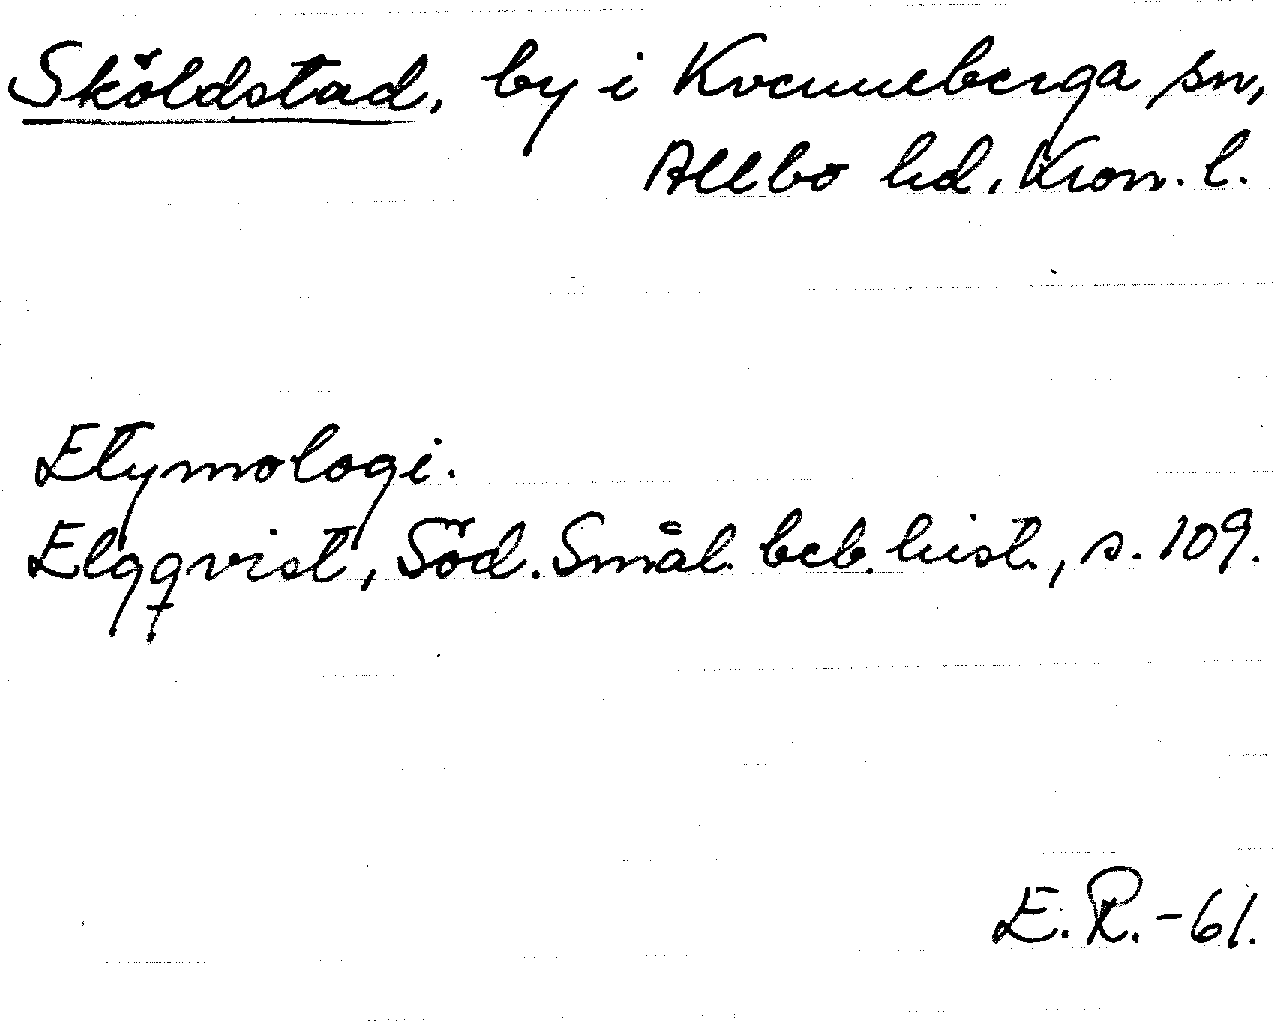 Sköldstad, by i Kvenneberga sn,
Allbo hd, Kron. l.
Etymologi.
Elgqvist, Söd. Smål. beb. hist., s. 109.
E. R. -61.